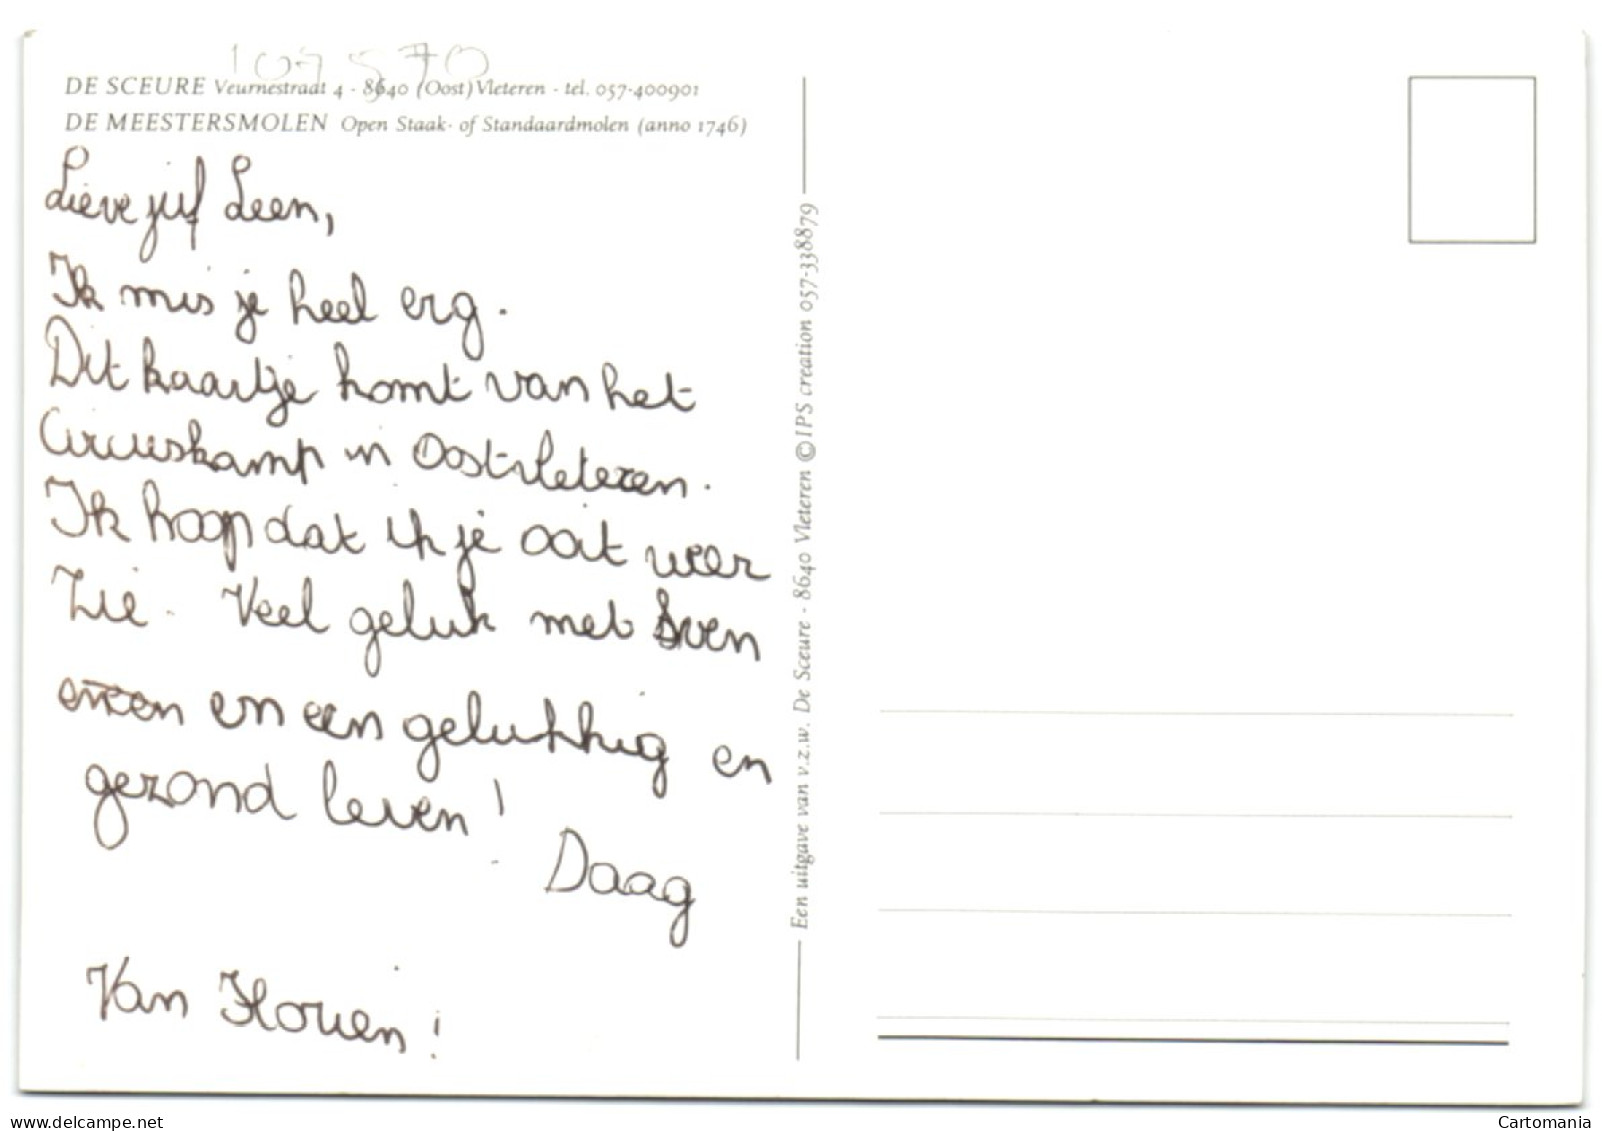 107570
DE SCEURE Veurnestraat 4 - 8640 (Oost)Vleteren - tel. 057-400901
DE MEESTERSMOLEN Open Staak- of Standaardmolen (anno 1746)
Lieve juf Leen,
Ik mis je heel erg.
Dit kaartje komt van het
Circuskamp in Oostvleteren.
Ik hoop dat ik je ooit weer
zie. Veel geluk met Sven
en een gelukkig en
gezond leven!
Daag
Van
Een uitgave van v.z.w. De Sceure - 8640 Vleteren © IPS creation 057-338879
delcampe.net
Cartomania